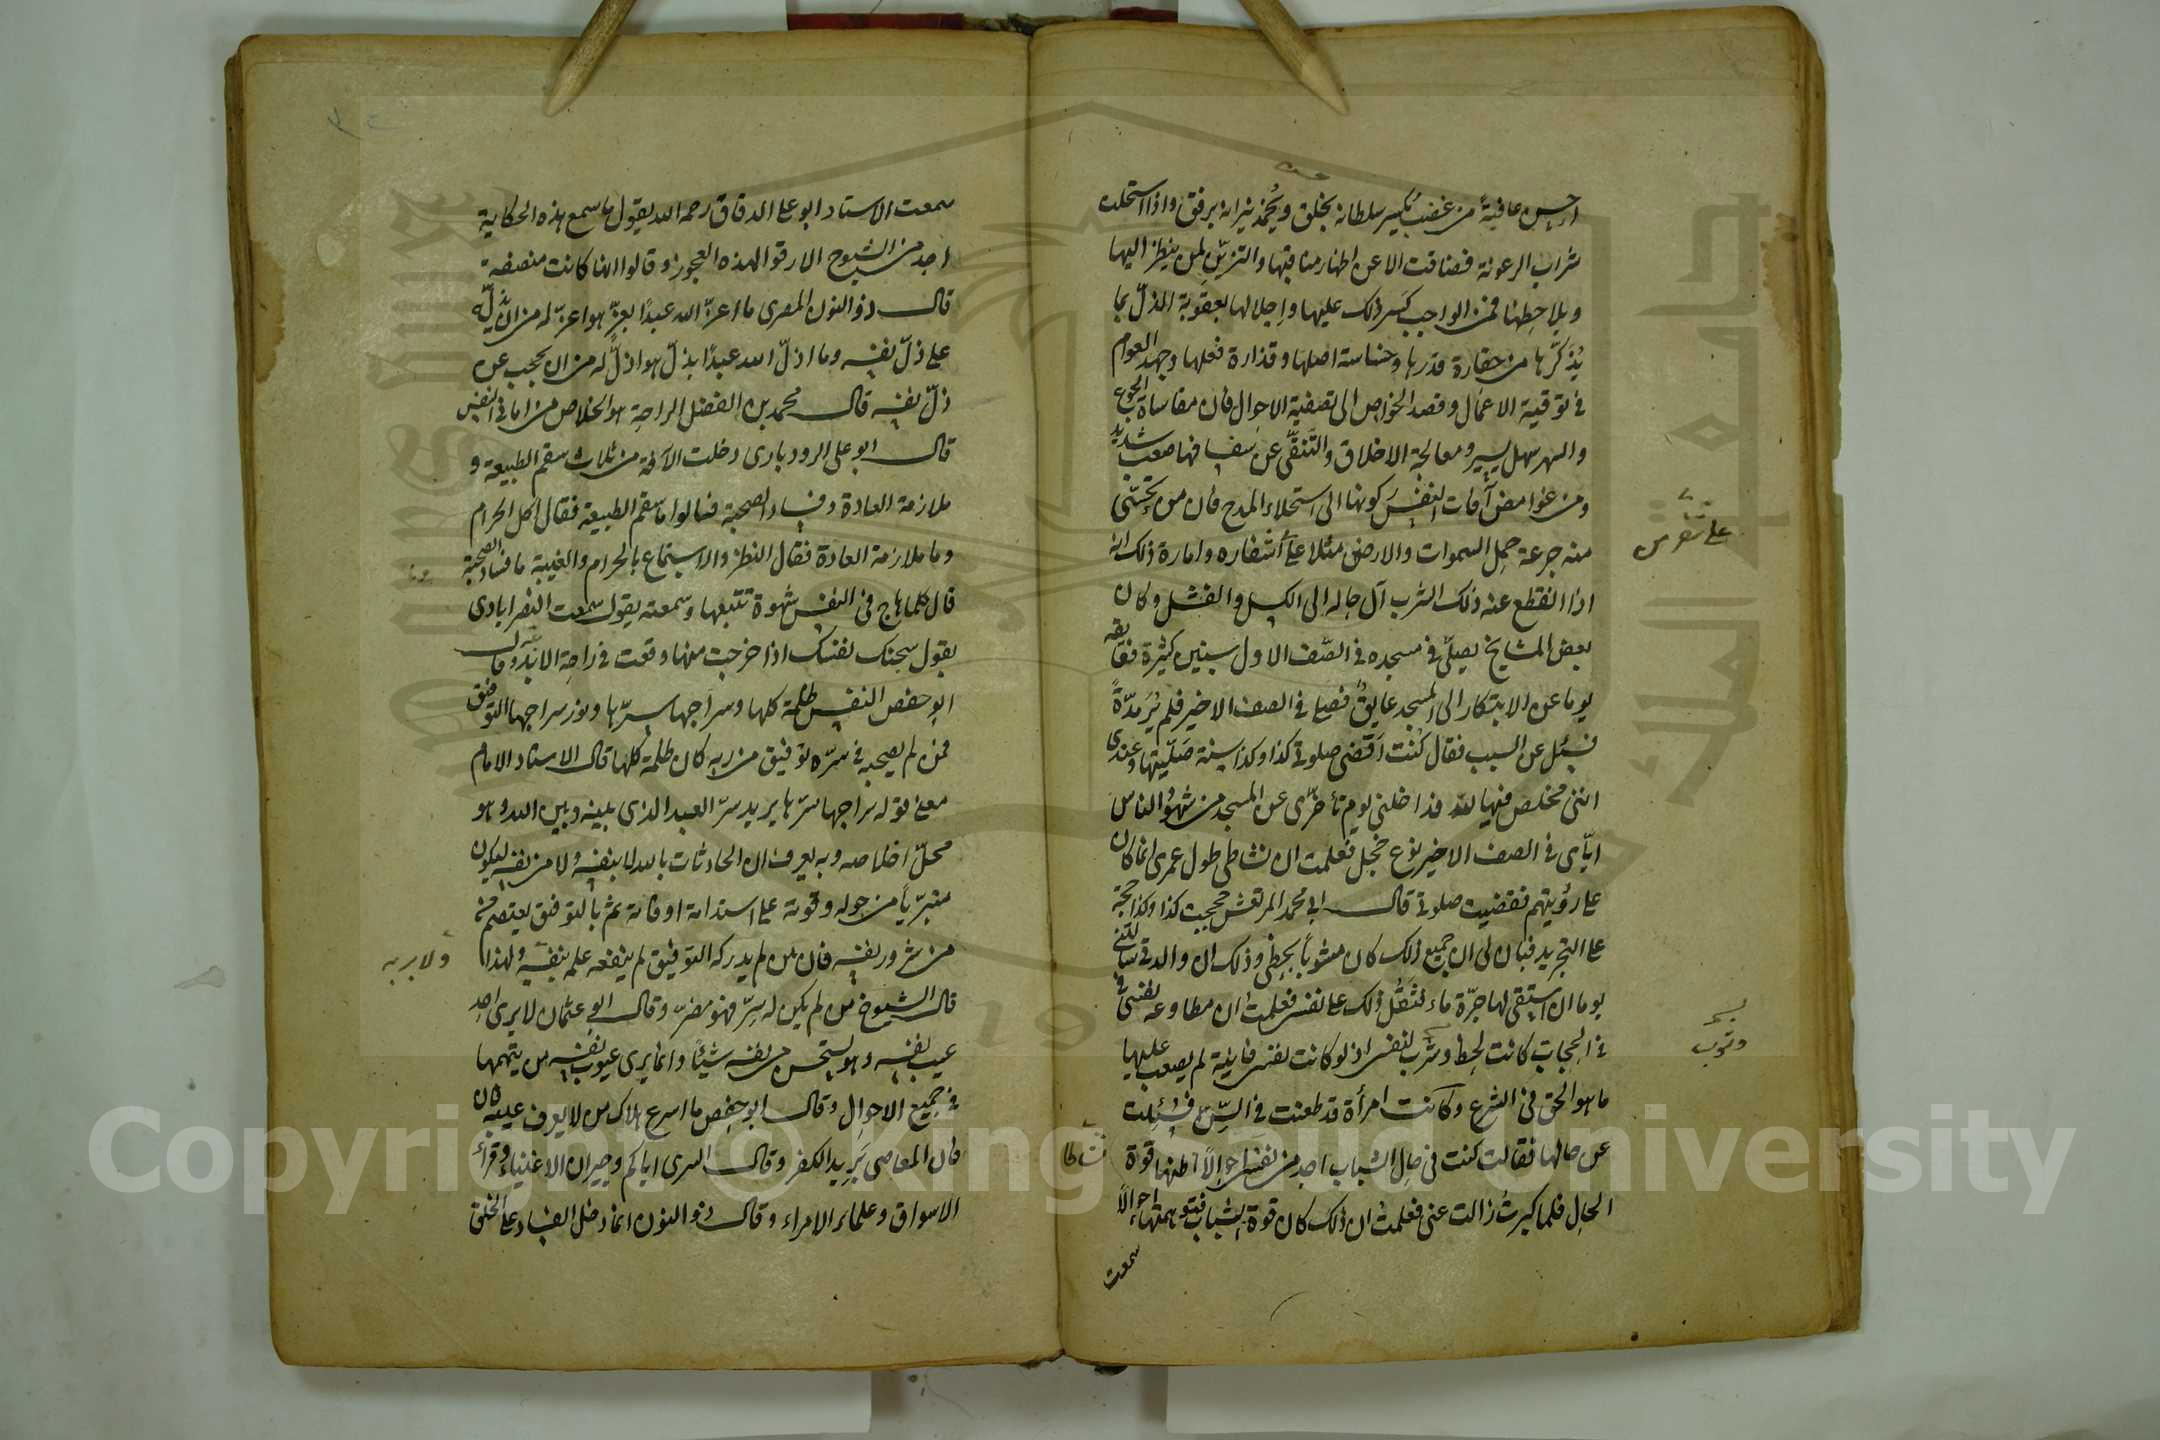 احسن عاقبة من غضب يكسر سلطانه بخلق ويخمد نيرانه برفق واذا استحلت
شراب الرعونة فضاقت الا عن اظهار مناقبها والتزين لمن ينظر اليها
ويلاحظها فمن الواجب كسر ذلك عليها واحلالها بعقوبة الذل بما
يذكرها من حقارة قدرها وخساسة اصلها وقذارة فعلها وجهد العوام
في توفية الاعمال وقصد الخواص الى تصفية الاحوال فان مقاساة الجوع
والسهر سهل يسير ومعالجة الاخلاق والتنقي عن سفسافها صعب شديد
ومن غوامض آفات النفس ركونها الى استحلاء المدح فان من تحسى
منه جرعة حمل السموات والارضين مثلا على اشفاره وامارة ذلك انه
اذا انقطع عنه ذلك الشرب آل حاله الى الكسل والفشل وكان
بعض المشايخ يصلي في مسجده في الصف الاول سنين كثيرة فعاقه
يوما عن الابتكار الى المسجد عايق فصلى في الصف الاخير فلم ير مدة
فسئل عن السبب فقال كنت اقضي صلوتي كذا وكذا سنة صليتها وعندي
انني مخلص فيها لله فداخلني يوم تأخري عن المسجد من شهود الناس
اياي في الصف الاخير نوع خجل فعلمت ان نشاطي طول عمري انما كان
على رؤيتهم فقضيت صلوتي قال ابي محمد المرتعش حججت كذا وكذا حجة
على التجريد فبان لي ان جميع ذلك كان مشوبا بحظي وذلك ان والدتي سألتني
يوما ان استقي لها جرة ماء فثقل ذلك على نفسي فعلمت ان مطاوعة نفسي في
في الحجات كانت لحظ وشرب لنفسي اذ لو كانت نفسي فانية لم يصعب عليها
ما هو الحق في الشرع وكانت امرأة قد طعنت في السن فسئلت
عن حالها فقالت كنت في حال الشباب اجد من نفسي احوالا اظنها قوة
الحال فلما كبرت زالت عني فعلمت ان ذلك كان قوة الشباب فتوهمتها احوالا
سمعت
نشاطا
سمعت الاستاد ابو على الدقاق رحمه الله يقول ما سمع هذه الحكاية
احد من الشيوخ الا رقوا لهذه العجوز وقالوا انها كانت منصفة
قال ذو النون المصري ما اعز الله عبدا بعز هو اعز له من ان يذله
على ذل نفسه وما اذل الله عبدا بذل هو اذل له من ان يحجب عن
ذل نفسه قال محمد بن الفضل الراحة هو الخلاص من اماني النفس
قال ابو على الرودباري دخلت الآفة من ثلاث سقم الطبيعة و
ملازمة العادة وفساد الصحبة فسالوا ما سقم الطبيعة فقال اكل الحرام
وما ملازمة العادة فقال النظر والاستماع بالحرام والغيبة ما فساد الصحبة
قال كلما هاج في النفس شهوة تتبعها وسمعته يقول سمعت النصرابادي
يقول سجنك نفسك اذا خرجت منها وقعت في راحة الابد وقال
ابو حفص النفس ظلمة كلها وسراجها سرها ونور سراجها التوفيق
فمن لم يصحبه في سره توفيق من ربه كان ظلمة كلها قال الاستاد الامام
معنى قوله سراجها سرها يريد سر العبد الذي بينه وبين الله وهو
محل اخلاصه وبه يعرف ان الحادثات بالله لا بنفسه ولا من نفسه ليكون
متبريا من حوله وقوته على استدامة اوقاته ثم بالتوفيق يعتصم
من شرور نفسه فان من لم يدركه التوفيق لم ينفعه علمه بنفسه ولهذا
قال الشيوخ من لم يكن له سر فهو مصر وقال ابو عثمان لا يرى احد
عيب نفسه وهو يستحسن من نفسه شيئا وانما يرى عيوب نفسه من يتهمها
في جميع الاحوال وقال ابو حفص ما اسرع هلاك من لا يعرف عيبه فان
فان المعاصي بريد الكفر وقال السري اياكم وجيران الاغنياء وقراء
الاسواق وعلماء الامراء وقال ذو النون انما دخل الفساد على الخلق
ولا بربه
Copyright © King Saud University